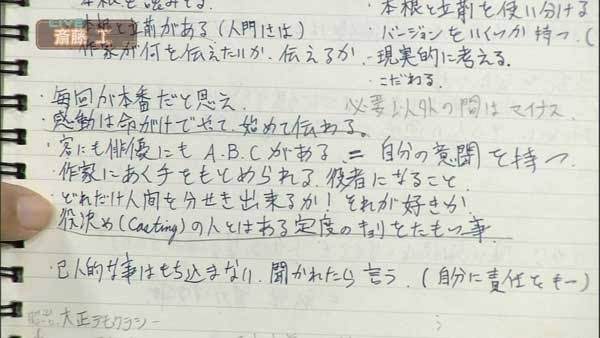 LIVE
斎藤 工
本根を読みとる
本根と立前を使い分ける
本根と立前がある(人門には)
・バージョンをいくつか持つ.(
作家が何を伝えたいか、伝えるか
・現実的に考える.
・こだわる.
・毎回が本番だと思え.
必要以外の間はマイナス
感動は命がけでやて、始めて伝わる。
・客にも俳優にも A.B.C がある. = 自分の意聞を持つ
・作家にあく手をもとめられる役者になること.
・どれだけ人間を分せき出来るか! それが好きか
役決め (Casting)の人とはある定度のキョリをたもつ事.
・己人的な事はもち込まない、聞かれたら言う.(自分に責任をもー)
大正デモクラシー